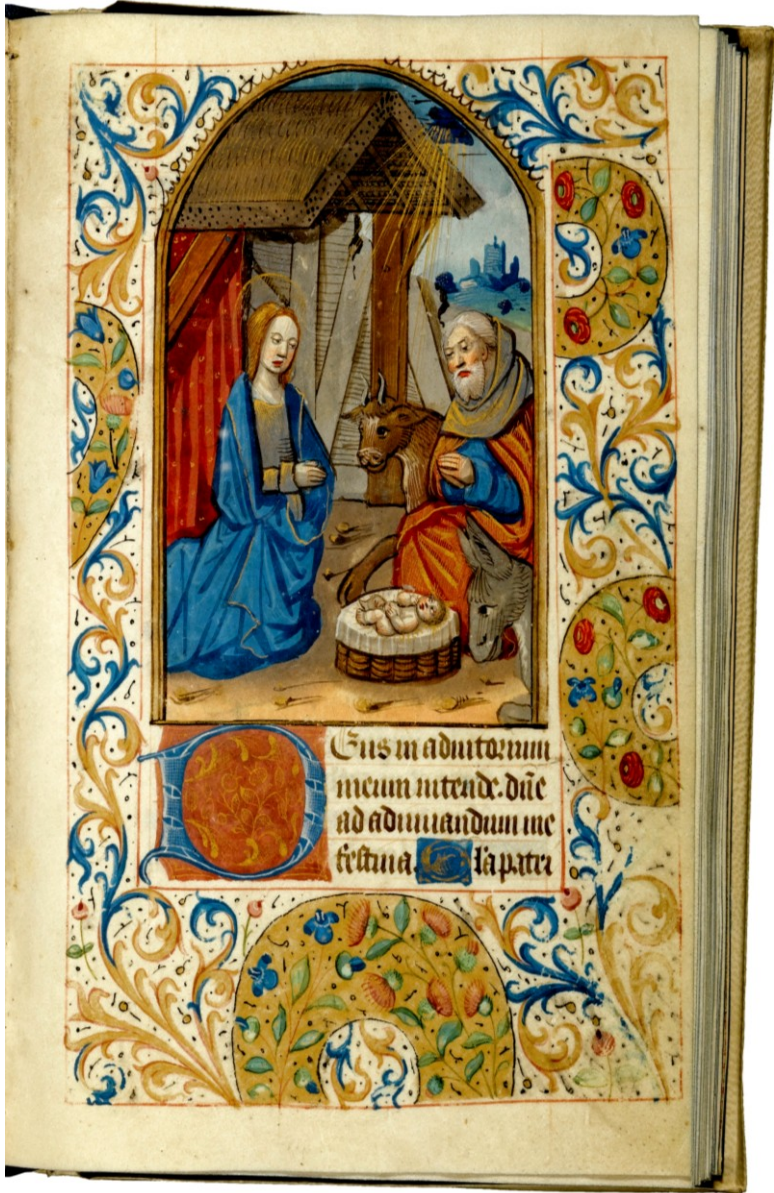 Deus in adiutorium
meum intende. dn̄e
ad adiuuandum me
festina. Gl'a patri